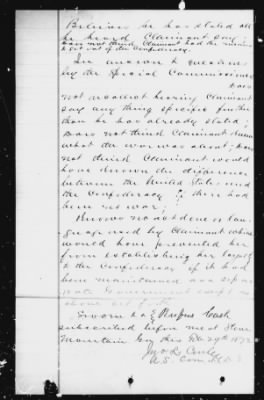 Believes he has stated all
he heard Claimant say;
does not think Claimant had the means
to get out of the Confederacy.
In answer to questions
by the Special Commissioner
does
not recollect hearing Claimant
say any thing specific further
than he has already stated;
does not think Claimant knew
what the war was about; does
not think Claimant would
have known the difference
between the United States and
the Confederacy if there had
been no war;
Knows no act done or lan-
guage used by Claimant which
would have prevented her
from establishing her loyalty
to the Confederacy if it had
been maintained as a sepa-
rate Government except as
above set forth
Sworn to & Rufus Cash
subscribed before me at Stone
Mountain Ga this
U.S. Com.